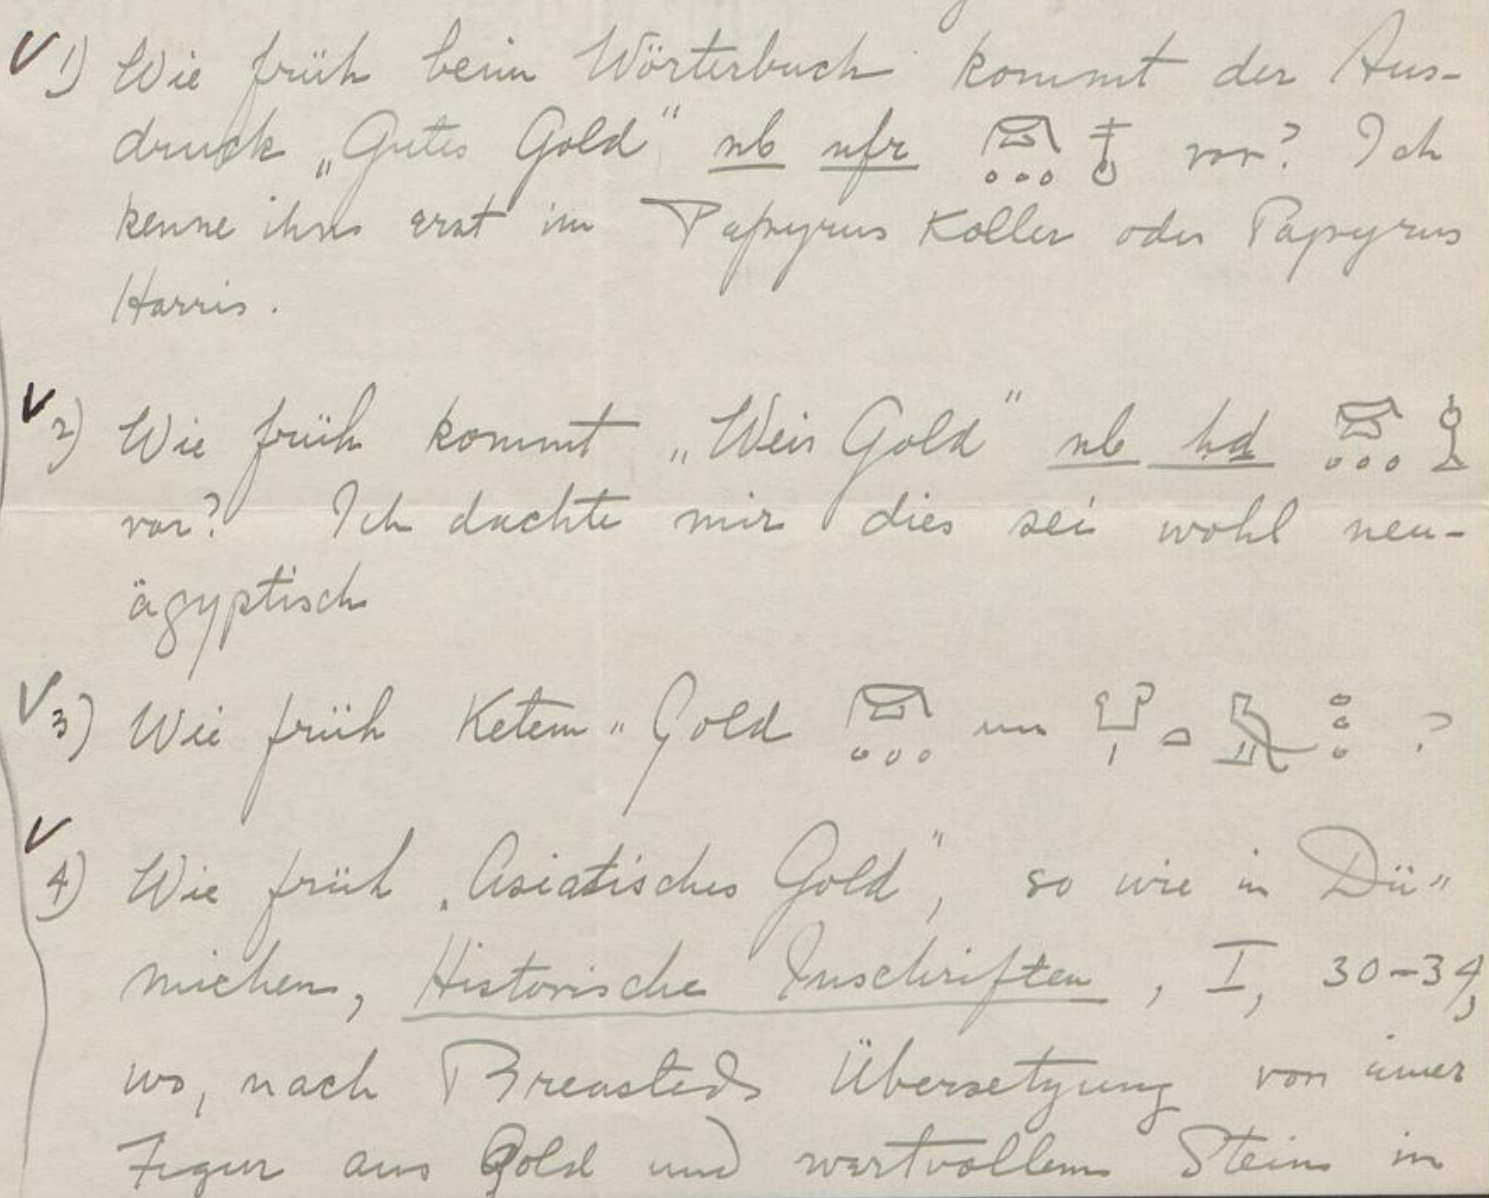 ✓ 1) Wie früh beim Wörterbuch kommt der Aus-
druck „Gutes Gold" nb nfr 𓋞 𓏥 𓄤 vor? Ich
kenne ihn erst im Papyrus Koller oder Papyrus
Harris.
✓ 2) Wie früh kommt „Weis Gold" nb hd 𓋞 𓏥 𓌉
vor? Ich dachte mir dies sei wohl neu-
ägyptisch
✓ 3) Wie früh Ketem-Gold 𓋞 𓏥 𓂓 𓏤 𓏏 𓅓 𓏥 ?
✓ 4) Wie früh „Asiatisches Gold", so wie in Dü-
michen, Historische Inschriften, I, 30-34,
wo, nach Breasteds Übersetzung von einer
Figur aus Gold und wertvollem Stein in